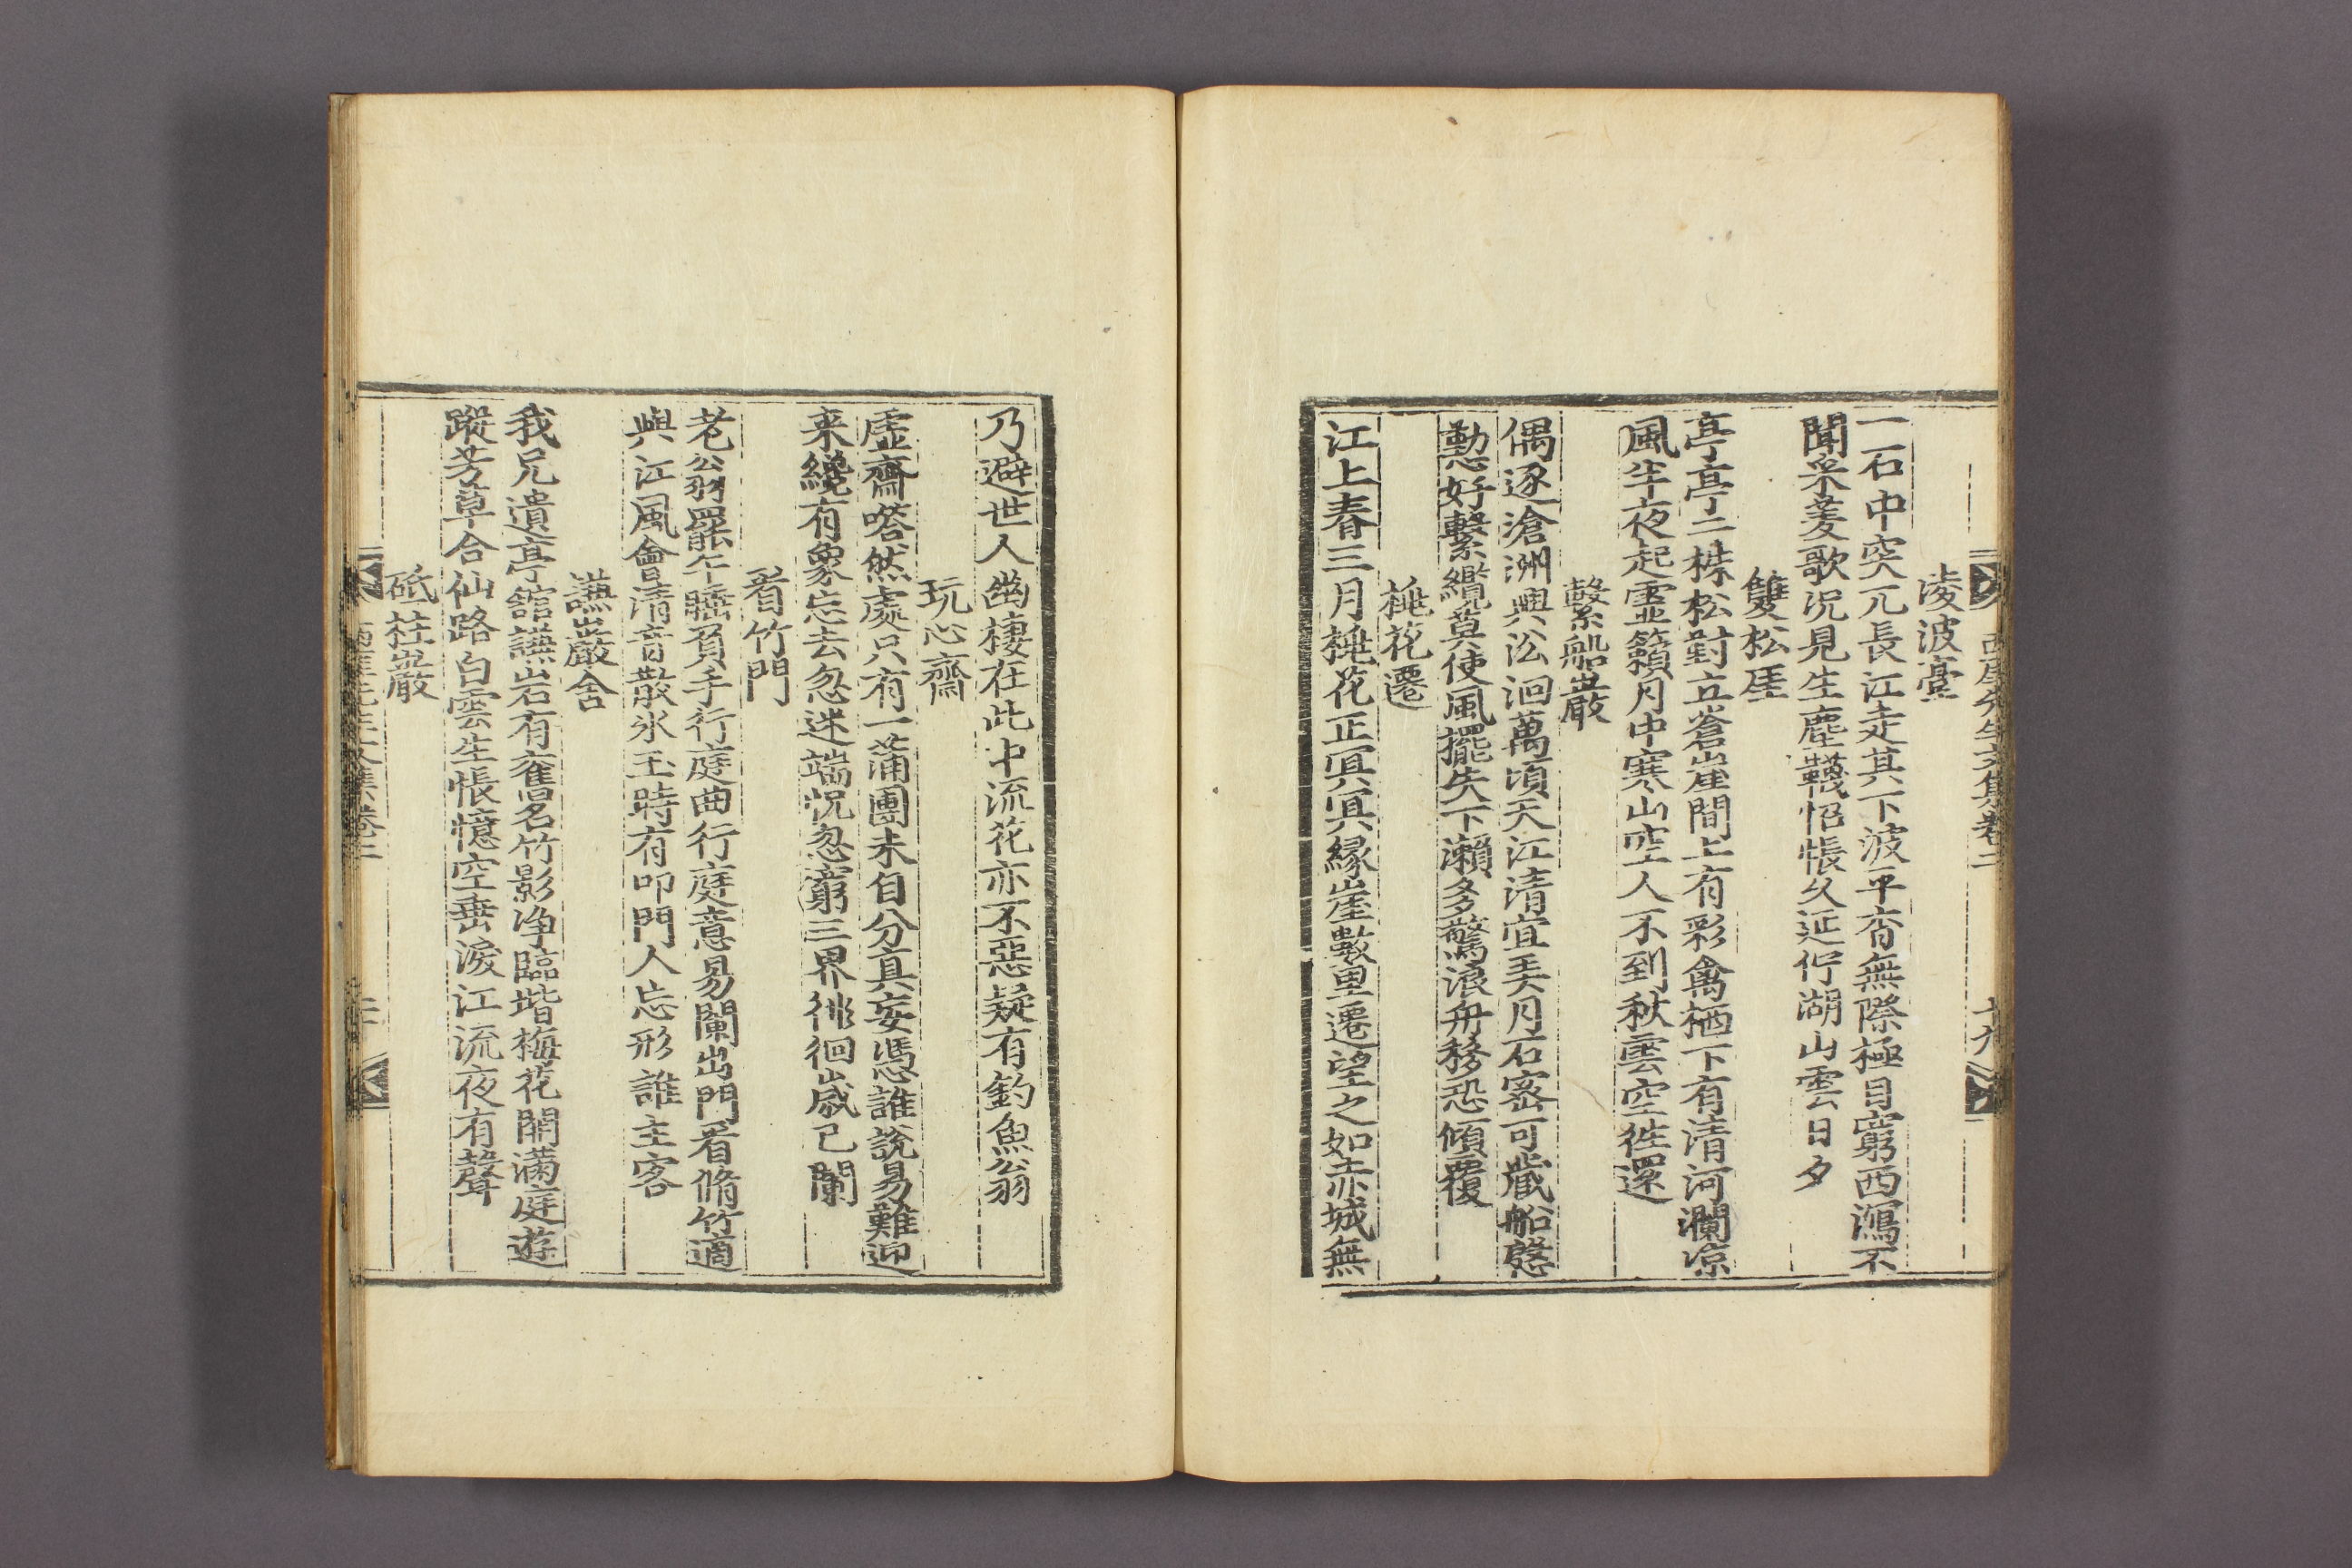 西厓先生文集卷二 十九
淩波臺
一石中突兀長江走其下波平杳無際極目窮西瀉不
聞采菱歌況見生塵韈怊悵久延佇湖山雲日夕
雙松厓
亭亭二株松對立蒼崖間上有彩禽栖下有清河瀾凉
風半夜起靈籟月中寒山空人不到秋雲空徃還
繫船巖
偶逐滄洲興沿洄萬頃天江清宜弄月石密可藏船慇
懃好繫纜莫使風擺失下瀨多驚浪舟移恐傾覆
桃花遷
江上春三月桃花正冥冥緣崖數里遷望之如赤城無
乃避世人幽棲在此中流花亦不惡疑有釣魚翁
玩心齋
虛齋嗒然處只有一蒲團未自分真妄憑誰說易難迎
来纔有象忘去忽迷端怳忽窮三界徘徊歲已闌
看竹門
老翁罷午睡負手行庭曲行庭意易闌出門看脩竹適
與江風會清音散氷玉時有叩門人忘形誰主客
讌巖舍
我兄遺亭舘讌岩有舊名竹影净臨堦梅花開滿庭遊
蹤芳草合仙路白雲生悵憶空垂淚江流夜有聲
砥柱巖
西厓先生文集卷二 二十